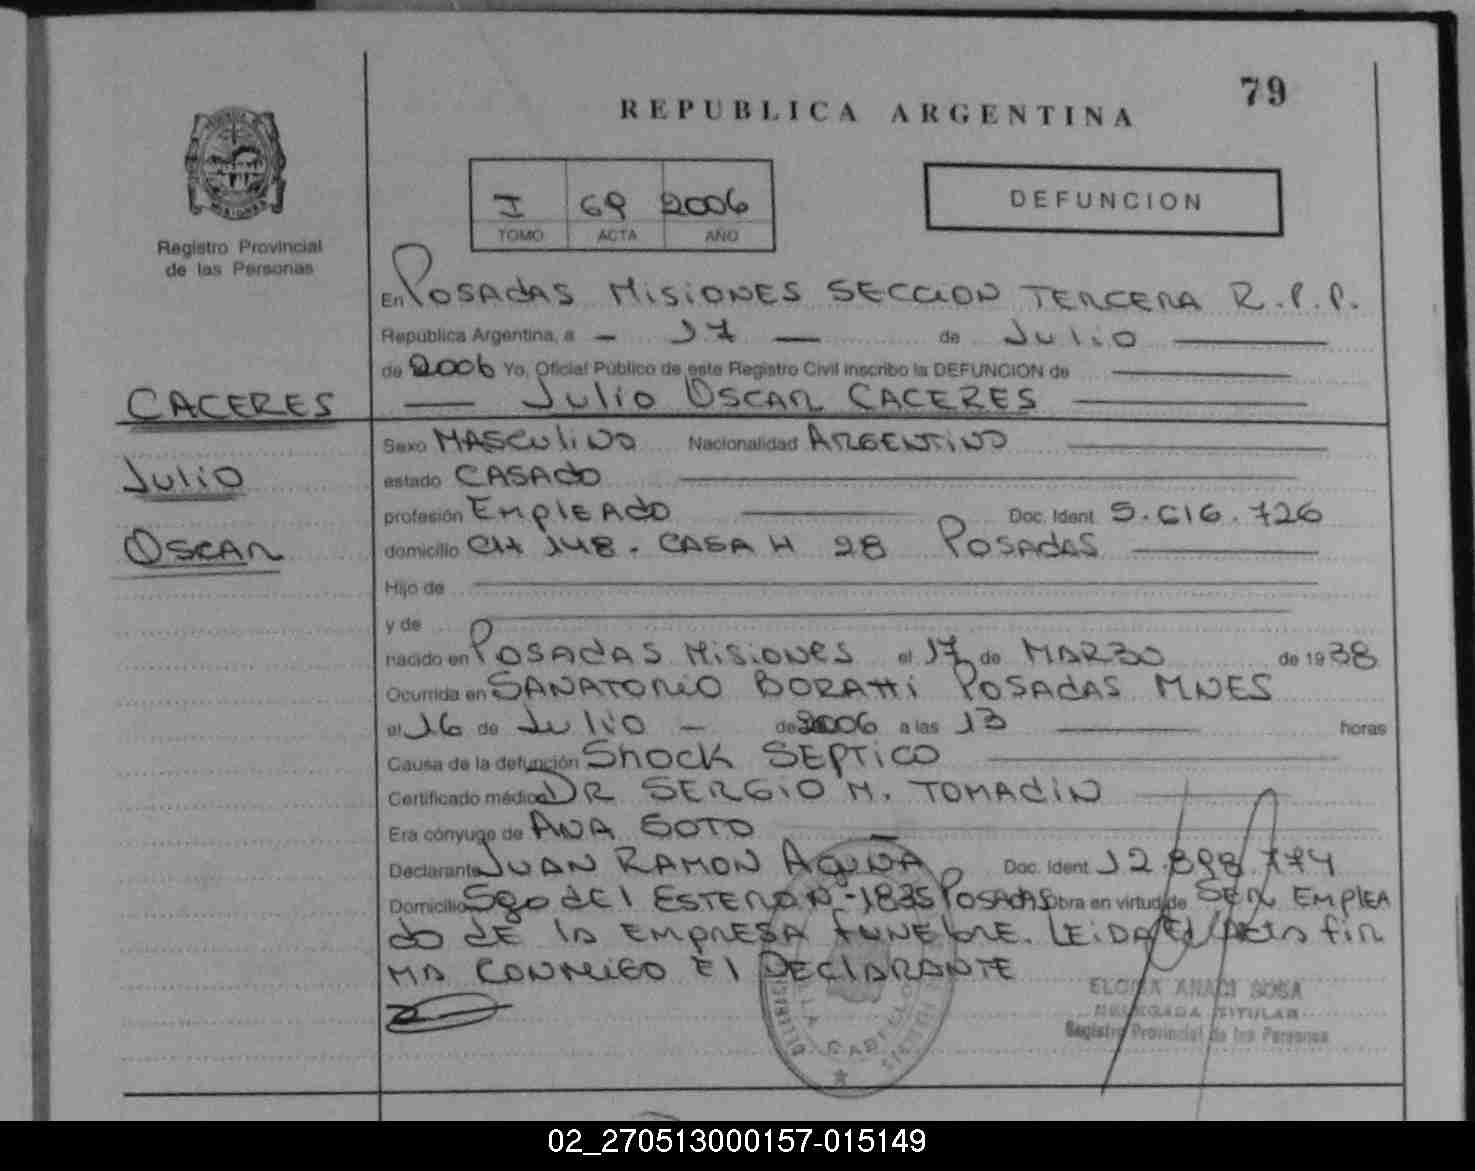 79
REPUBLICA ARGENTINA
I 69 2006
TOMO ACTA AÑO
DEFUNCION
Registro Provincial
de las Personas
En POSADAS MISIONES SECCION TERCERA R.P.P.
República Argentina, a — 17 — de Julio
de 2006 Yo, Oficial Público de este Registro Civil inscribo la DEFUNCION de
CACERES
Julio OSCAR CACERES
Julio
OSCAR
Sexo MASCULINO Nacionalidad ARGENTINO
estado CASADO
profesión EMPLEADO Doc. Ident. 5.616.726
domicilio CH 148. CASA H 28 POSADAS
Hijo de
y de
nacido en POSADAS MISIONES el 17 de MARZO de 1938
Ocurrida en SANATORIO BORATTI POSADAS MNES
el 16 de Julio — de 2006 a las 13 horas
Causa de la defunción SHOCK SEPTICO
Certificado médico DR SERGIO M. TOMADIN
Era cónyuge de ANA SOTO
Declarante JUAN RAMON Doc. Ident. 12.898.774
Domicilio Sgo del ESTERO Nº 1835 POSADAS Obra en virtud de SER EMPLEA
DO DE LA EMPRESA FUNEBRE. LEIDA El Acta fir
MA CONMIGO El DECLARANTE
ANAHI SOSA
DELEGADA TITULAR
Registro Provincial de las Personas
02_270513000157-015149